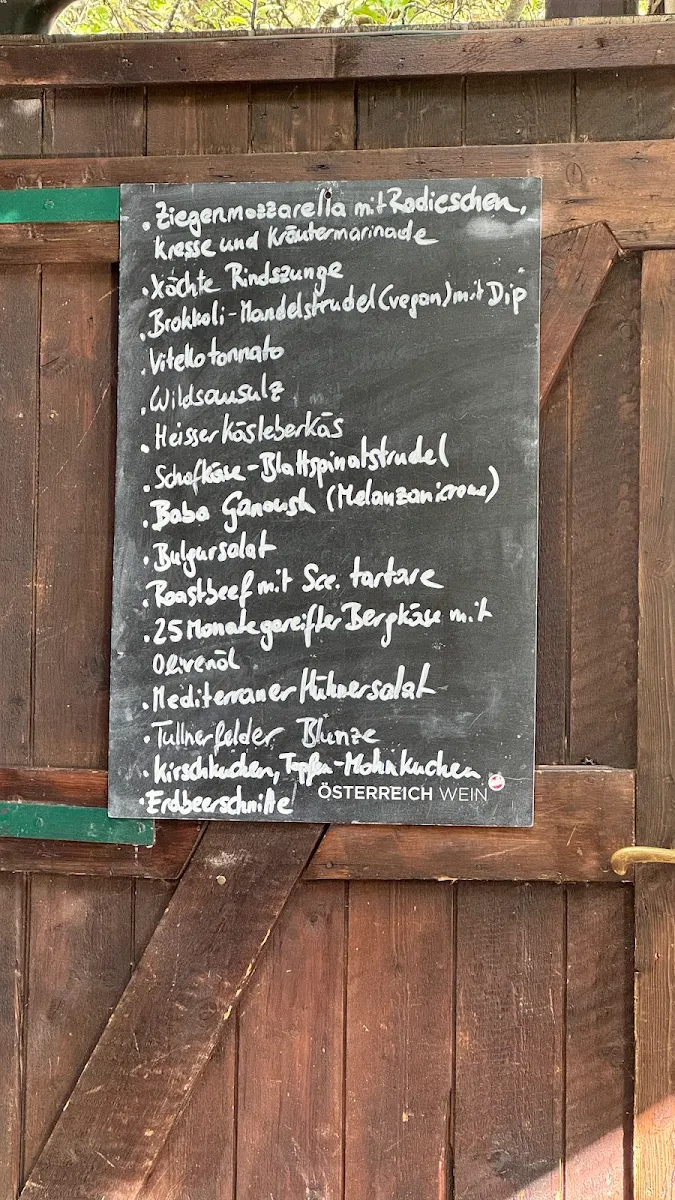 · Ziegenmozzarella mit Radieschen,
Kresse und Kräutermarinade
· Xöchte Rindszunge
· Brokkoli-Mandelstrudel (vegan) mit Dip
· Vitello tonnato
· Wildsausulz
· Heisser Käsleberkäs
· Schafkäse-Blattspinatstrudel
· Baba Ganoush (Melanzanicreme)
· Bulgursalat
· Roastbeef mit Sce. tartare
· 25 Monate gereifter Bergkäse mit
Olivenöl
· Mediterraner Hühnersalat
· Tullnerfelder Blunze
· Kirschkuchen, Topfen-Mohnkuchen
· Erdbeerschnitte
ÖSTERREICH WEIN